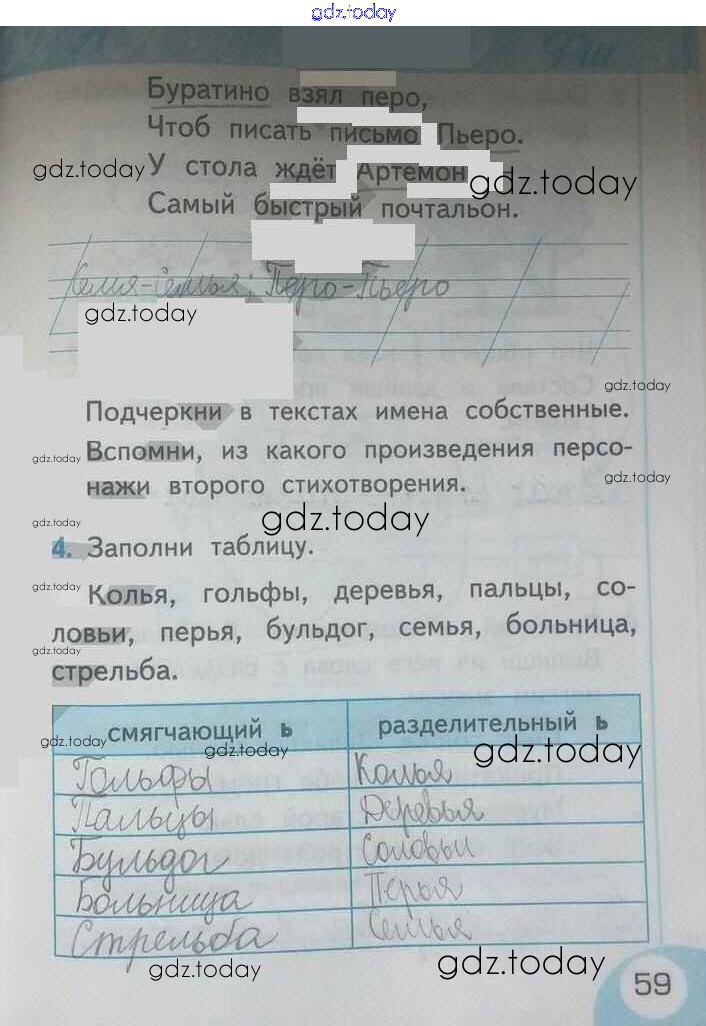 gdz.today
Буратино взял перо,
Чтоб писать письмо Пьеро.
gdz.today
У стола ждёт Артемон
gdz.today
Самый быстрый почтальон.
Семя-Семья; Перо-Пьеро
gdz.today
gdz.today
Подчеркни в текстах имена собственные.
gdz.today
Вспомни, из какого произведения персо-
gdz.today
нажи второго стихотворения.
gdz.today
gdz.today
4. Заполни таблицу.
gdz.today
Колья, гольфы, деревья, пальцы, со-
ловьи, перья, бульдог, семья, больница,
gdz.today
стрельба.
смягчающий ь разделительный ь
gdz.today
gdz.today
gdz.today
Гольфы Колья
Пальцы Деревья
Бульдог Соловьи
Больница Перья
Стрельба Семья
gdz.today
gdz.today
59